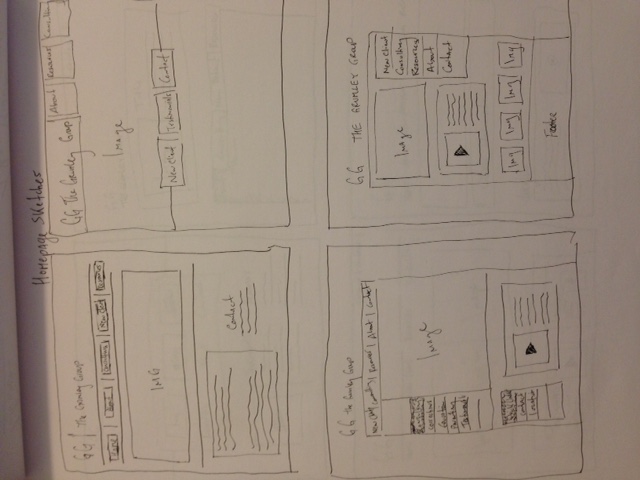 Homepage Sketches
GG | The Grumley Group
Home About Consulting New Client Resources
IMG
Contact
GG The Grumley Group About Resources Consulting
Image
New Client Testimonials Contact
GG The Grumley Group
New Client | Consulting | Resources | About | Contact
Image
Consulting
Education
Parenting
Testimonials
Contact
Location
GG THE GRUMLEY GROUP
Image
New Client
Consulting
Resources
About
Contact
Img Img Img Img
Footer